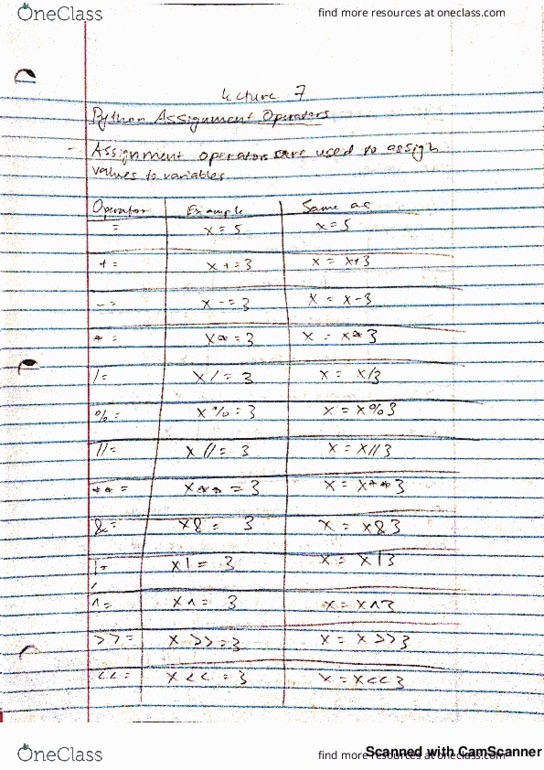 OneClass
find more resources at oneclass.com
Lecture 7
Python Assignment Operators
- Assignment operators are used to assign
values to variables.
Operator Example Same as
= x = 5 x = 5
+= x += 3 x = x+3
-= x -= 3 x = x-3
*= x*= 3 x = x*3
/= x/= 3 x = x/3
%= x%= 3 x = x%3
//= x//= 3 x = x//3
**= x**= 3 x = x**3
&= x&= 3 x = x&3
|= x|= 3 x = x|3
^= x^= 3 x = x^3
>>= x >>= 3 x = x >>3
<<= x <<= 3 x = x<<3
OneClass
find more resources at oneclass.com
Scanned with CamScanner